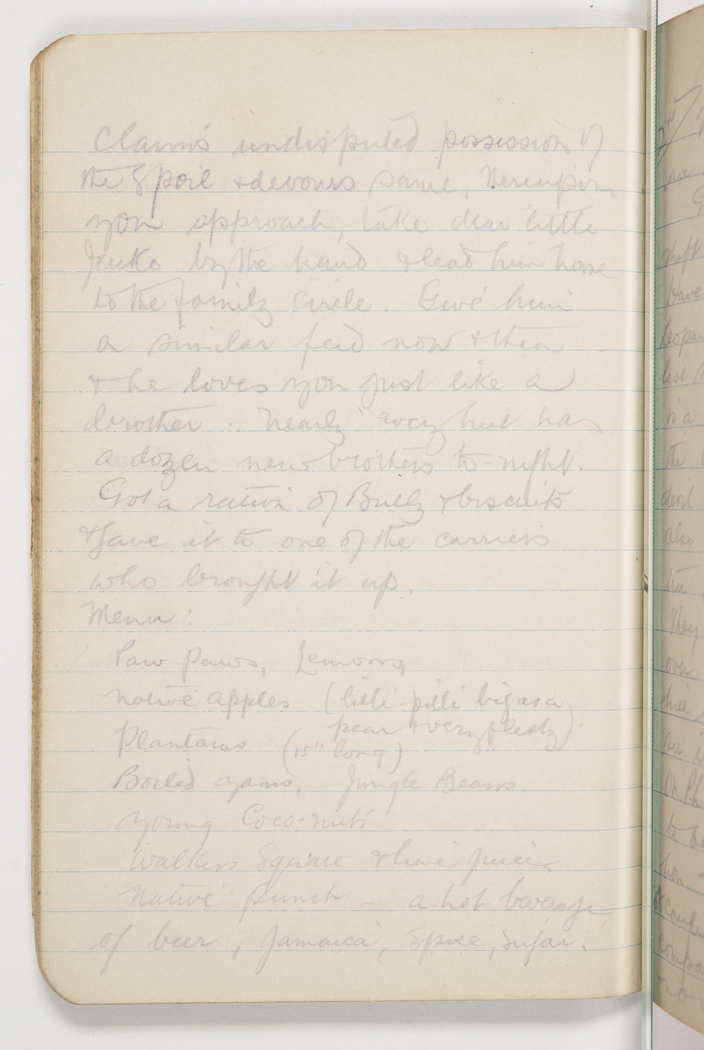 claims undisputed possession of
the spoil & devours same. Hereupon
you approach, take dear little
Jacko by the hand & lead him home
to the family circle. Give him
a similar feed now & then
& he loves you just like a
brother. Nearly every hut has
a dozen new brothers to-night.
Got a ration of Bully & biscuits
& gave it to one of the carriers
who brought it up.
Menu:
Paw paws, Lemons,
native apples (lilli-pilli big as a
pear & very fleshy).
Plantains (15" long)
Boiled yams, Jungle Beans.
young Coco-nuts
Walkers Squire & lime juice
Native punch — a hot beverage
of beer, Jamaica, Spice, Sugar.